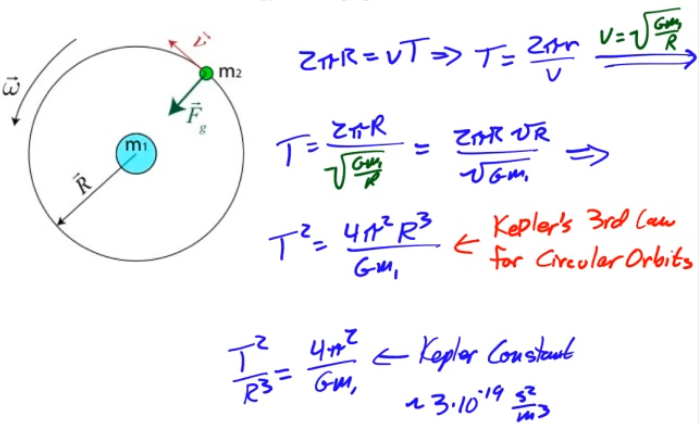 2πR = vT ⇒ T = 2πr/v  v = √(Gm₁/R) ⟹
T = 2πR/√(Gm₁/R) = 2πR√R/√Gm₁ ⇒
T² = 4π²R³/Gm₁ ← Kepler's 3rd Law
for Circular Orbits
T²/R³ = 4π²/Gm₁ ← Kepler Constant
~ 3·10⁻¹⁹ s²/m³
v⃗
m₂
ω⃗
F⃗g
m₁
R⃗